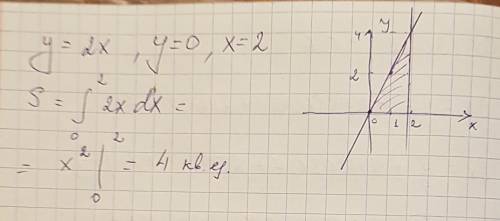 y = 2x , y=0, x=2
S = ∫₀² 2x dx =
= x² |₀² = 4 кв.ед.
y
4
2
0 1 2 x